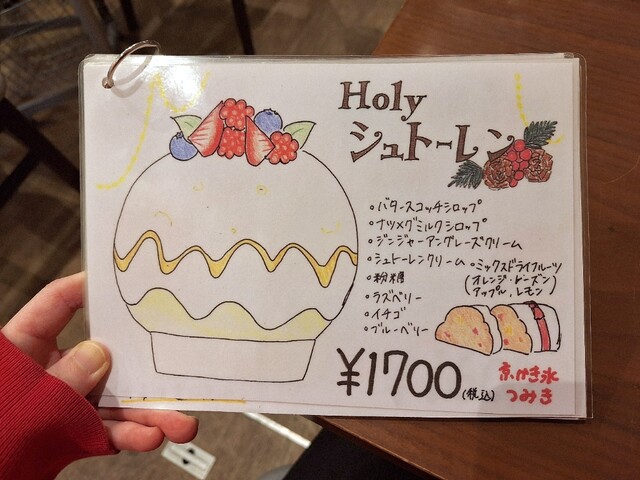 Holy
シュトーレン
・バタースコッチシロップ
・ナツメグミルクシロップ
・ジンジャーアングレーズクリーム
・シュトーレンクリーム ・ミックスドライフルーツ
(オレンジ・レーズン
アップル、レモン)
・粉糖
・ラズベリー
・イチゴ
・ブルーベリー
¥1700 (税込)
京かき氷
つみき